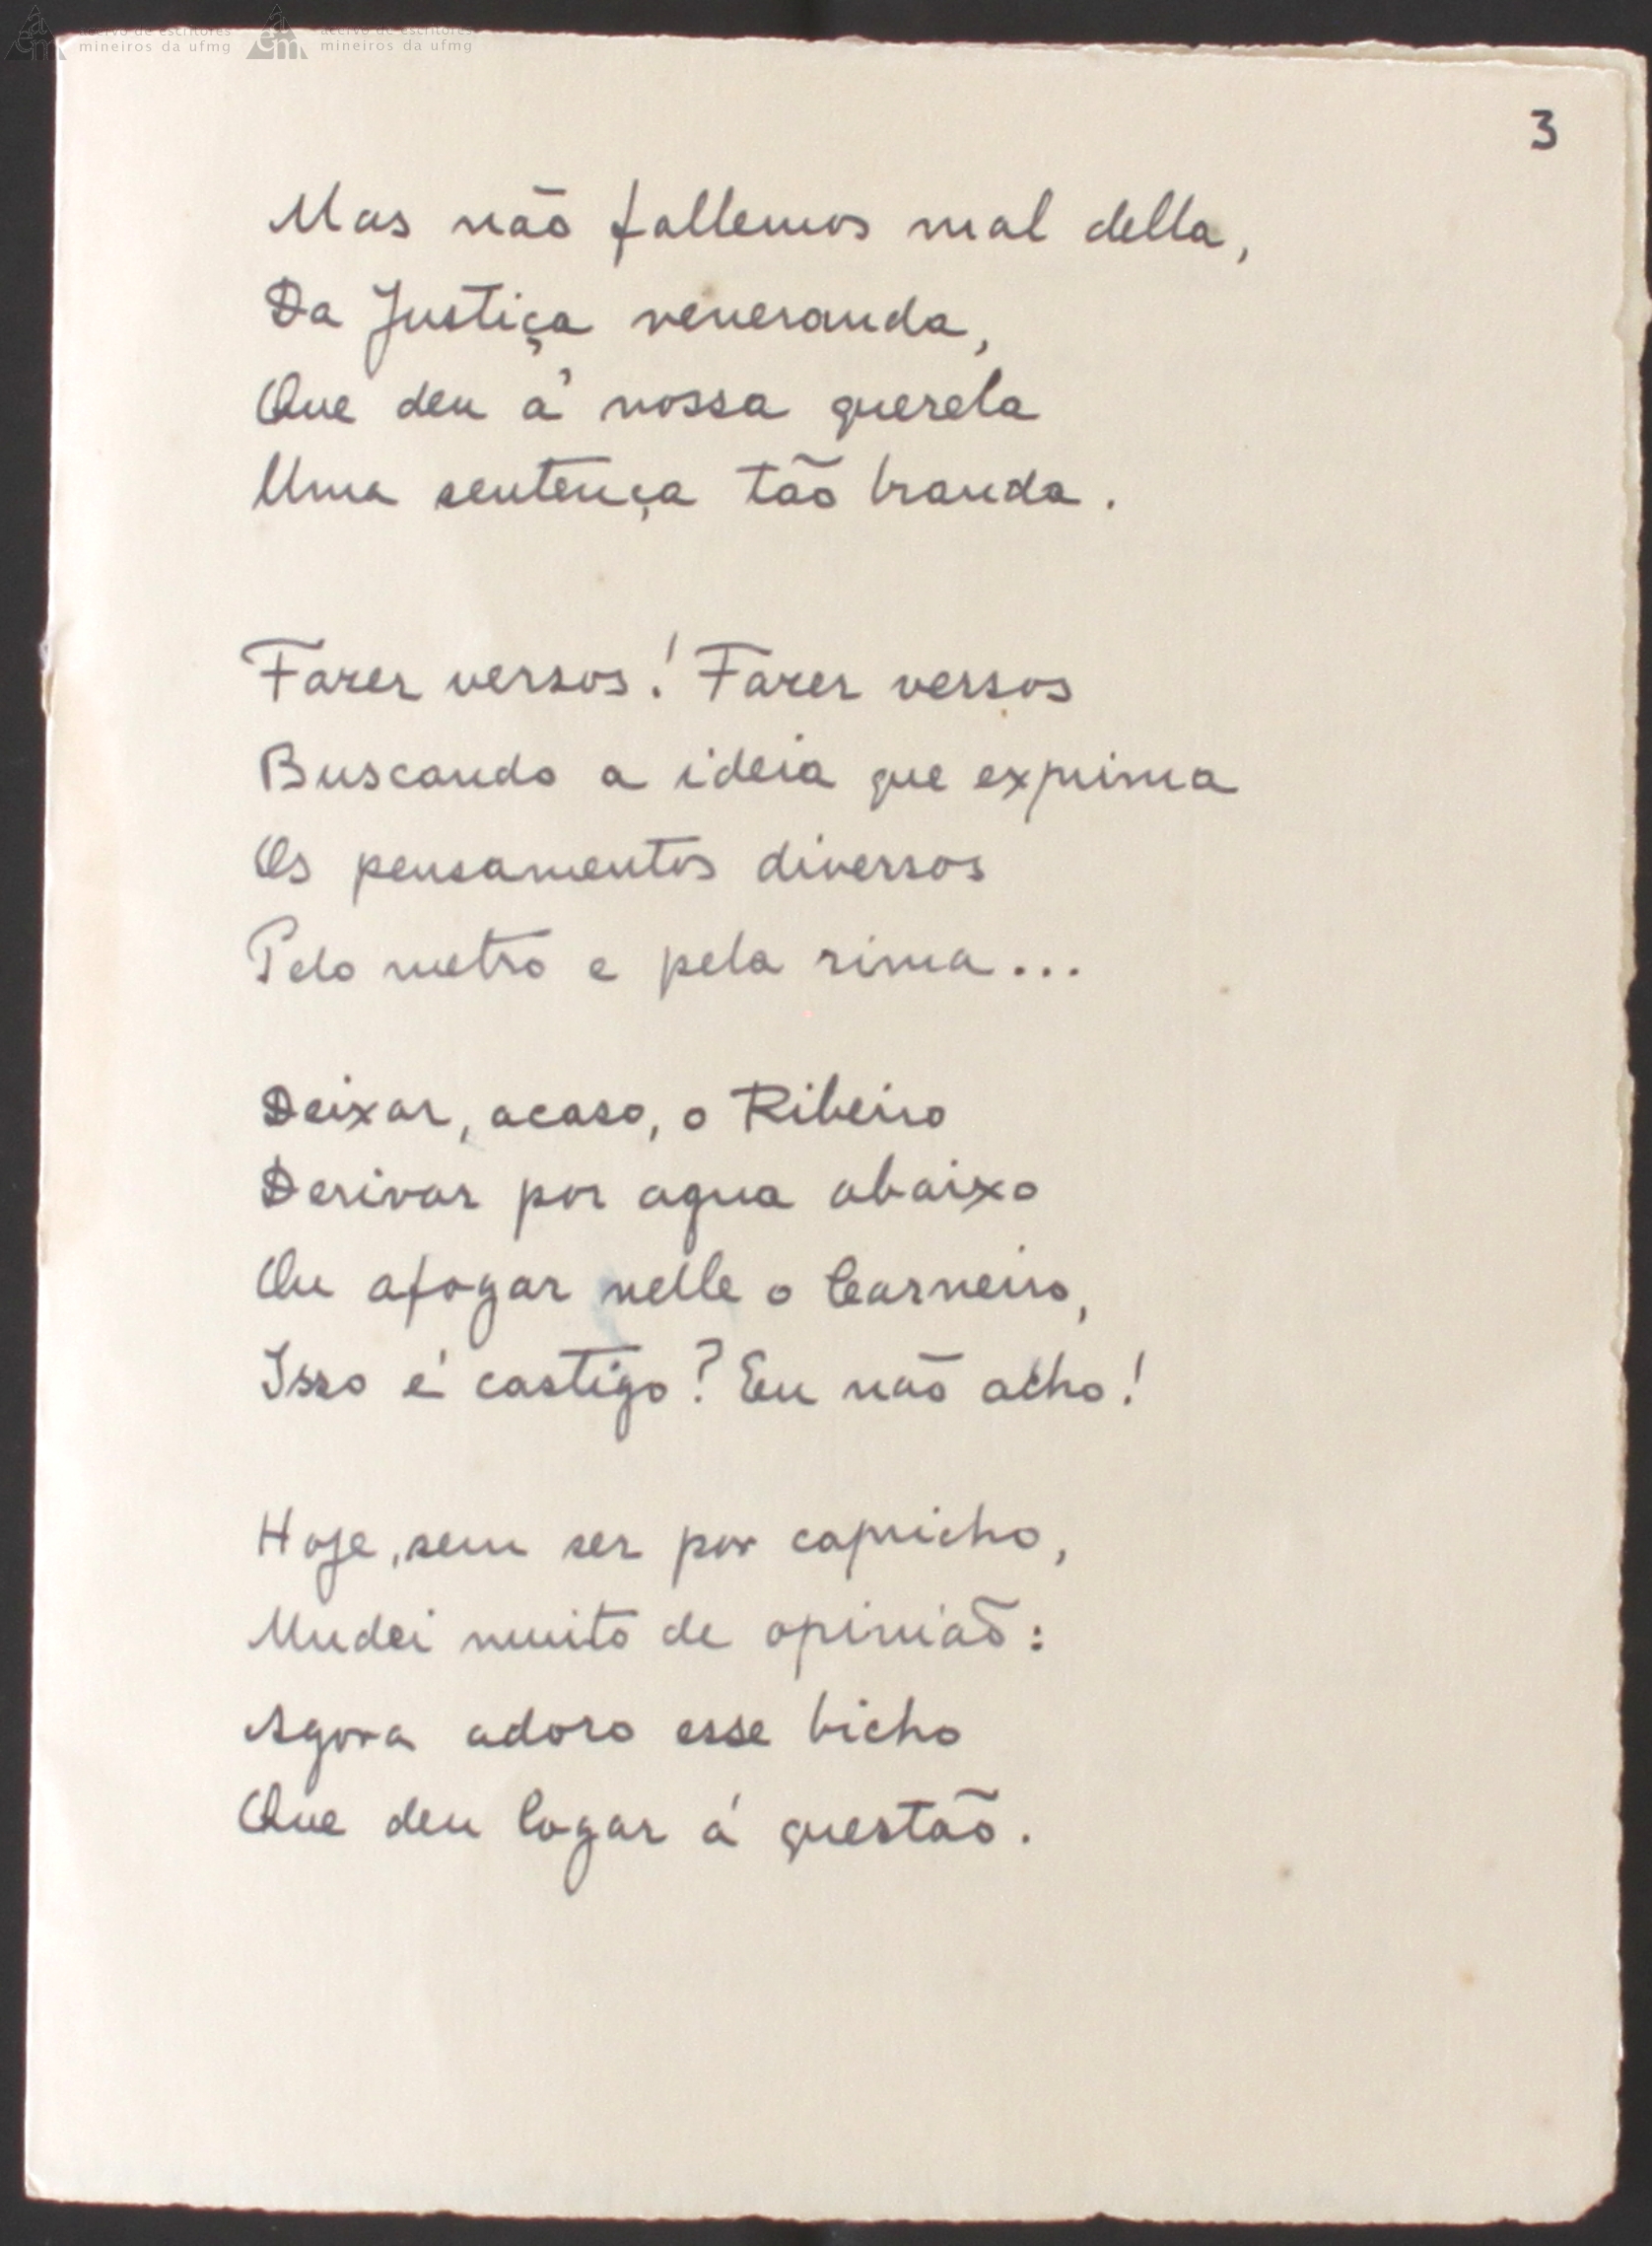 acervo de escritores
mineiros da ufmg
acervo de escritores
mineiros da ufmg
3
Mas não fallemos mal della,
Da Justiça veneranda,
Que deu á nossa querela
Uma sentença tão branda.
Fazer versos! Fazer versos
Buscando a ideia que exprima
Os pensamentos diversos
Pelo metro e pela rima...
Deixar, acaso, o Ribeiro
Derivar por agua abaixo
Ou afogar nelle o Carneiro,
Isso é castigo? Eu não acho!
Hoje, sem ser por capricho,
Mudei muito de opinião:
Agora adoro esse bicho
Que deu logar á questão.